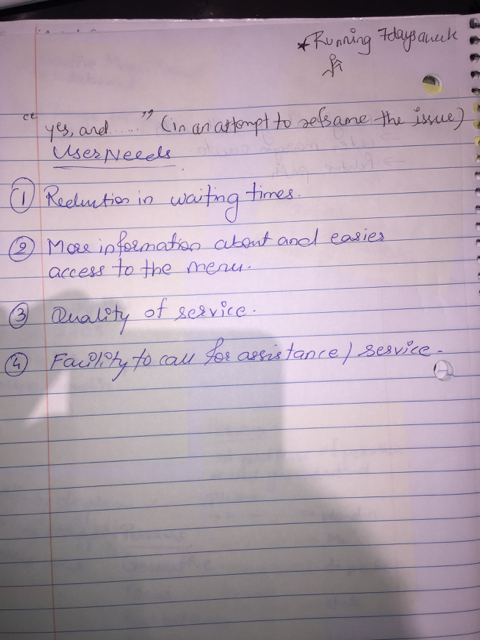 * Running 7days a week
"yes, and ....." (in an attempt to reframe the issue)
User Needs
① Reduction in waiting times.
② More information about and easier
access to the menu.
③ Quality of service.
④ Facility to call for assistance / service.